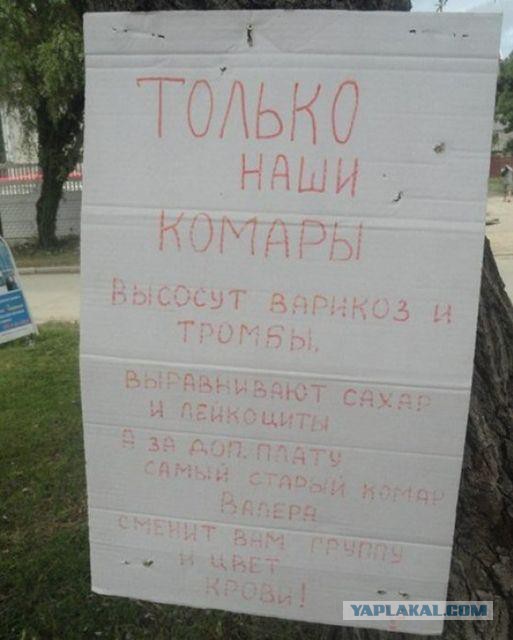 ТОЛЬКО
НАШИ
КОМАРЫ
ВЫСОСУТ ВАРИКОЗ И
ТРОМБЫ,
ВЫРАВНИВАЮТ САХАР
И ЛЕЙКОЦИТЫ
А ЗА ДОП. ПЛАТУ
САМЫЙ СТАРЫЙ КОМАР
ВАЛЕРА
СМЕНИТ ВАМ ГРУППУ
И ЦВЕТ
КРОВИ!
YAPLAKAL.COM